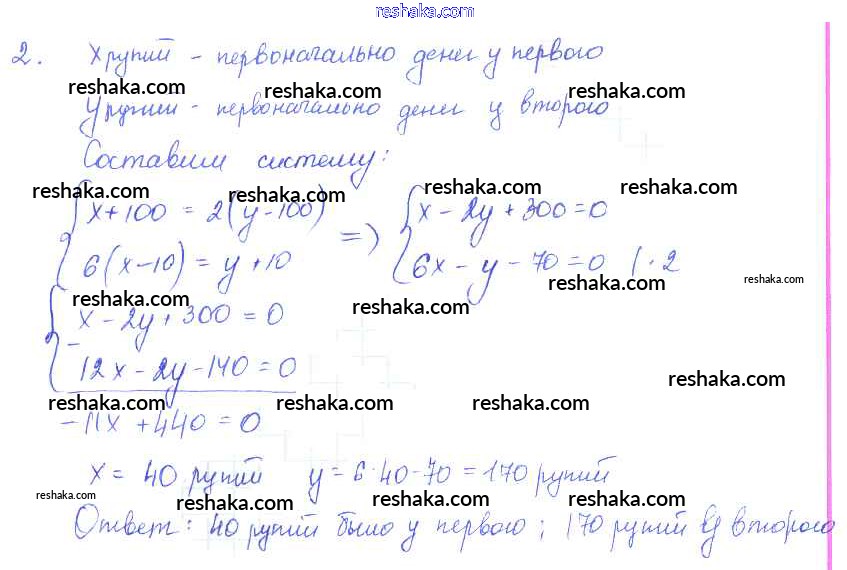 reshaka.com
2. X рупий - первоначально денег у первого
reshaka.com reshaka.com reshaka.com
У рупии - первоначально денег у второго
Составим систему:
reshaka.com reshaka.com reshaka.com reshaka.com
{ x + 100 = 2(y - 100) => { x - 2y + 300 = 0
{ 6(x - 10) = y + 10 { 6x - y - 70 = 0 | · 2
reshaka.com reshaka.com reshaka.com reshaka.com
{ x - 2y + 300 = 0
{ - 12x - 2y - 140 = 0
reshaka.com
reshaka.com reshaka.com reshaka.com reshaka.com
- 11x + 440 = 0
x = 40 рупий y = 6·40 - 70 = 170 рупий
reshaka.com reshaka.com reshaka.com reshaka.com
Ответ: 40 рупий было у первого; 170 рупий у второго